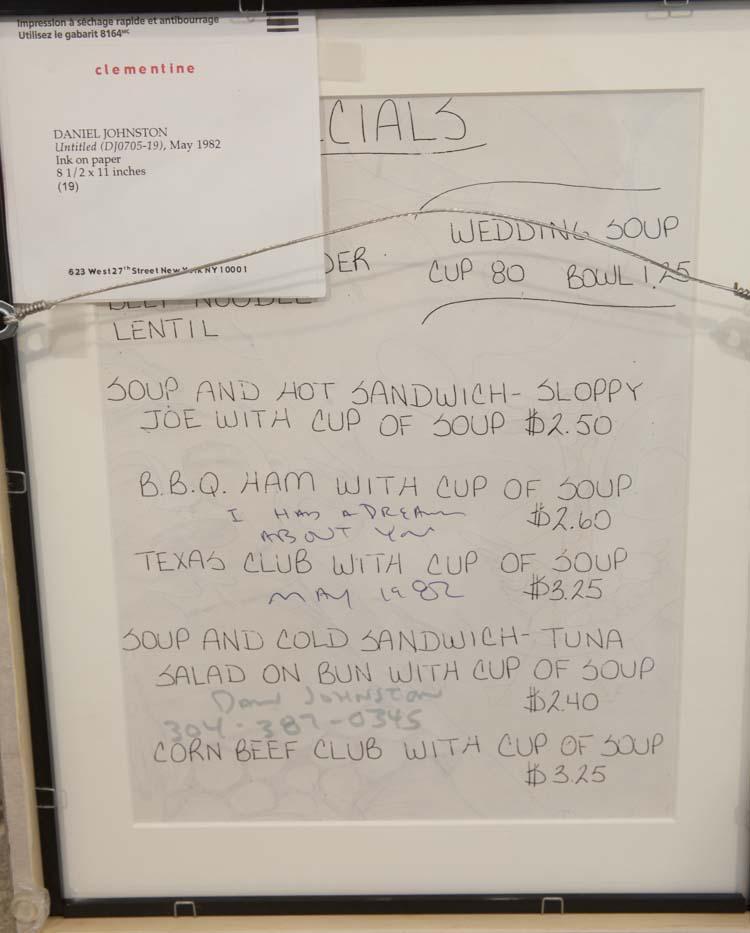 Impression à séchage rapide et antibourrage
Utilisez le gabarit 8164MC
clementine
DANIEL JOHNSTON
Untitled (DJ0705-19), May 1982
Ink on paper
8 1/2 x 11 inches
(19)
623 West27th Street New York NY 10001
CIALS
WEDDING SOUP
CUP 80 BOWL 1.25
DER
BEEF NOODLE
LENTIL
SOUP AND HOT SANDWICH- SLOPPY
JOE WITH CUP OF SOUP $2.50
B.B.Q. HAM WITH CUP OF SOUP
$2.60
I HAD A DREAM
ABOUT YOU
TEXAS CLUB WITH CUP OF SOUP
$3.25
MAY 1982
SOUP AND COLD SANDWICH- TUNA
SALAD ON BUN WITH CUP OF SOUP
$2.40
Dan JOHNSTON
304-387-0345
CORN BEEF CLUB WITH CUP OF SOUP
$3.25